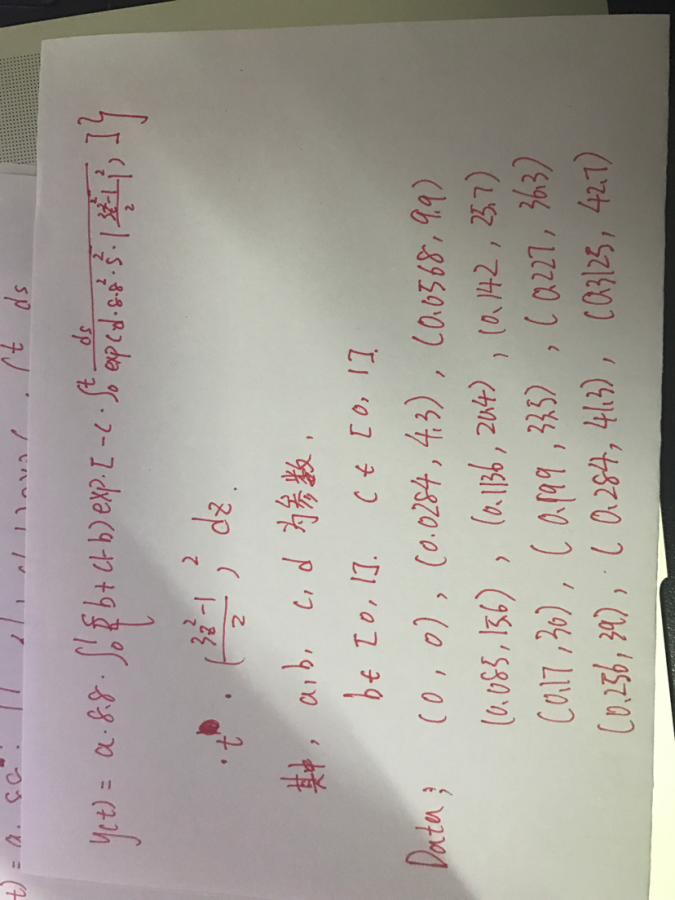 y(t) = a·8.8·∫₀¹{[b+(1-b)exp·[-c·∫₀ᵗ ds/exp(d·8.8²·s²·(3z²-1/2)²)]}
·t·(3z²-1/2)² dz.
其中, a, b, c, d 为参数.
b∈[0,1]. c∈[0,1].
Data: (0,0), (0.0284, 4.3), (0.0568, 9.9)
(0.085, 15.6), (0.1136, 20.4), (0.142, 25.7)
(0.17, 30), (0.199, 33.5), (0.227, 36.3)
(0.256, 39), (0.284, 41.3), (0.3125, 42.7)
ds